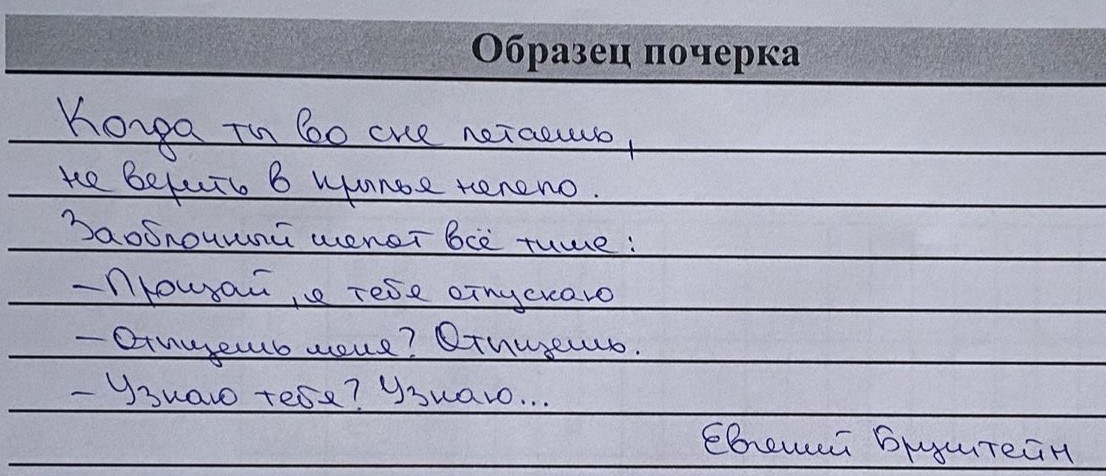 Образец почерка
Когда ты во сне летаешь,
не верить в крылья нелепо.
Заоблочный шепот всё тише:
– Прощай, я тебя отпускаю
– Отыщешь меня? Отыщешь.
– Узнаю тебя? Узнаю...
Евгений Бруштейн